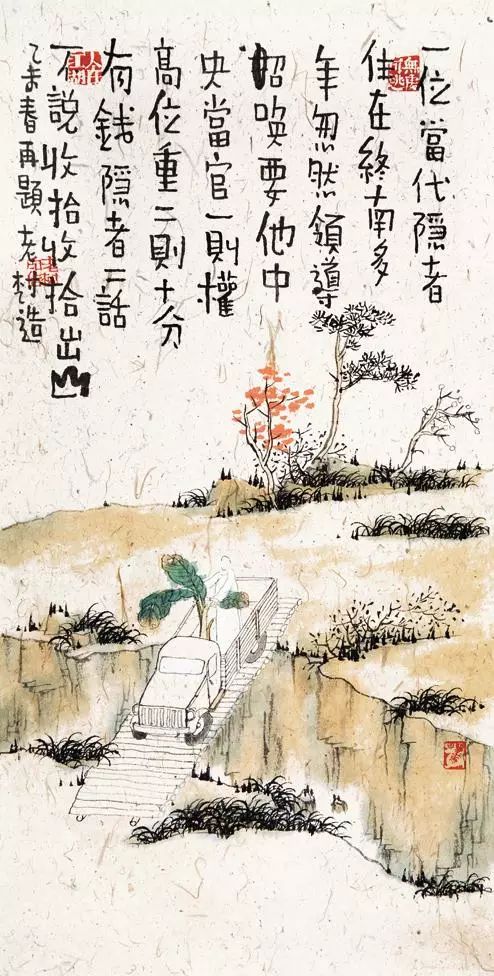 一位當代隱者
住在終南多
年忽然領導
招唤要他中
央當官一則權
高位重二則十分
有錢隐者二話
不說收拾收拾出山
乙未春再題老造
無處可逃
人在江湖